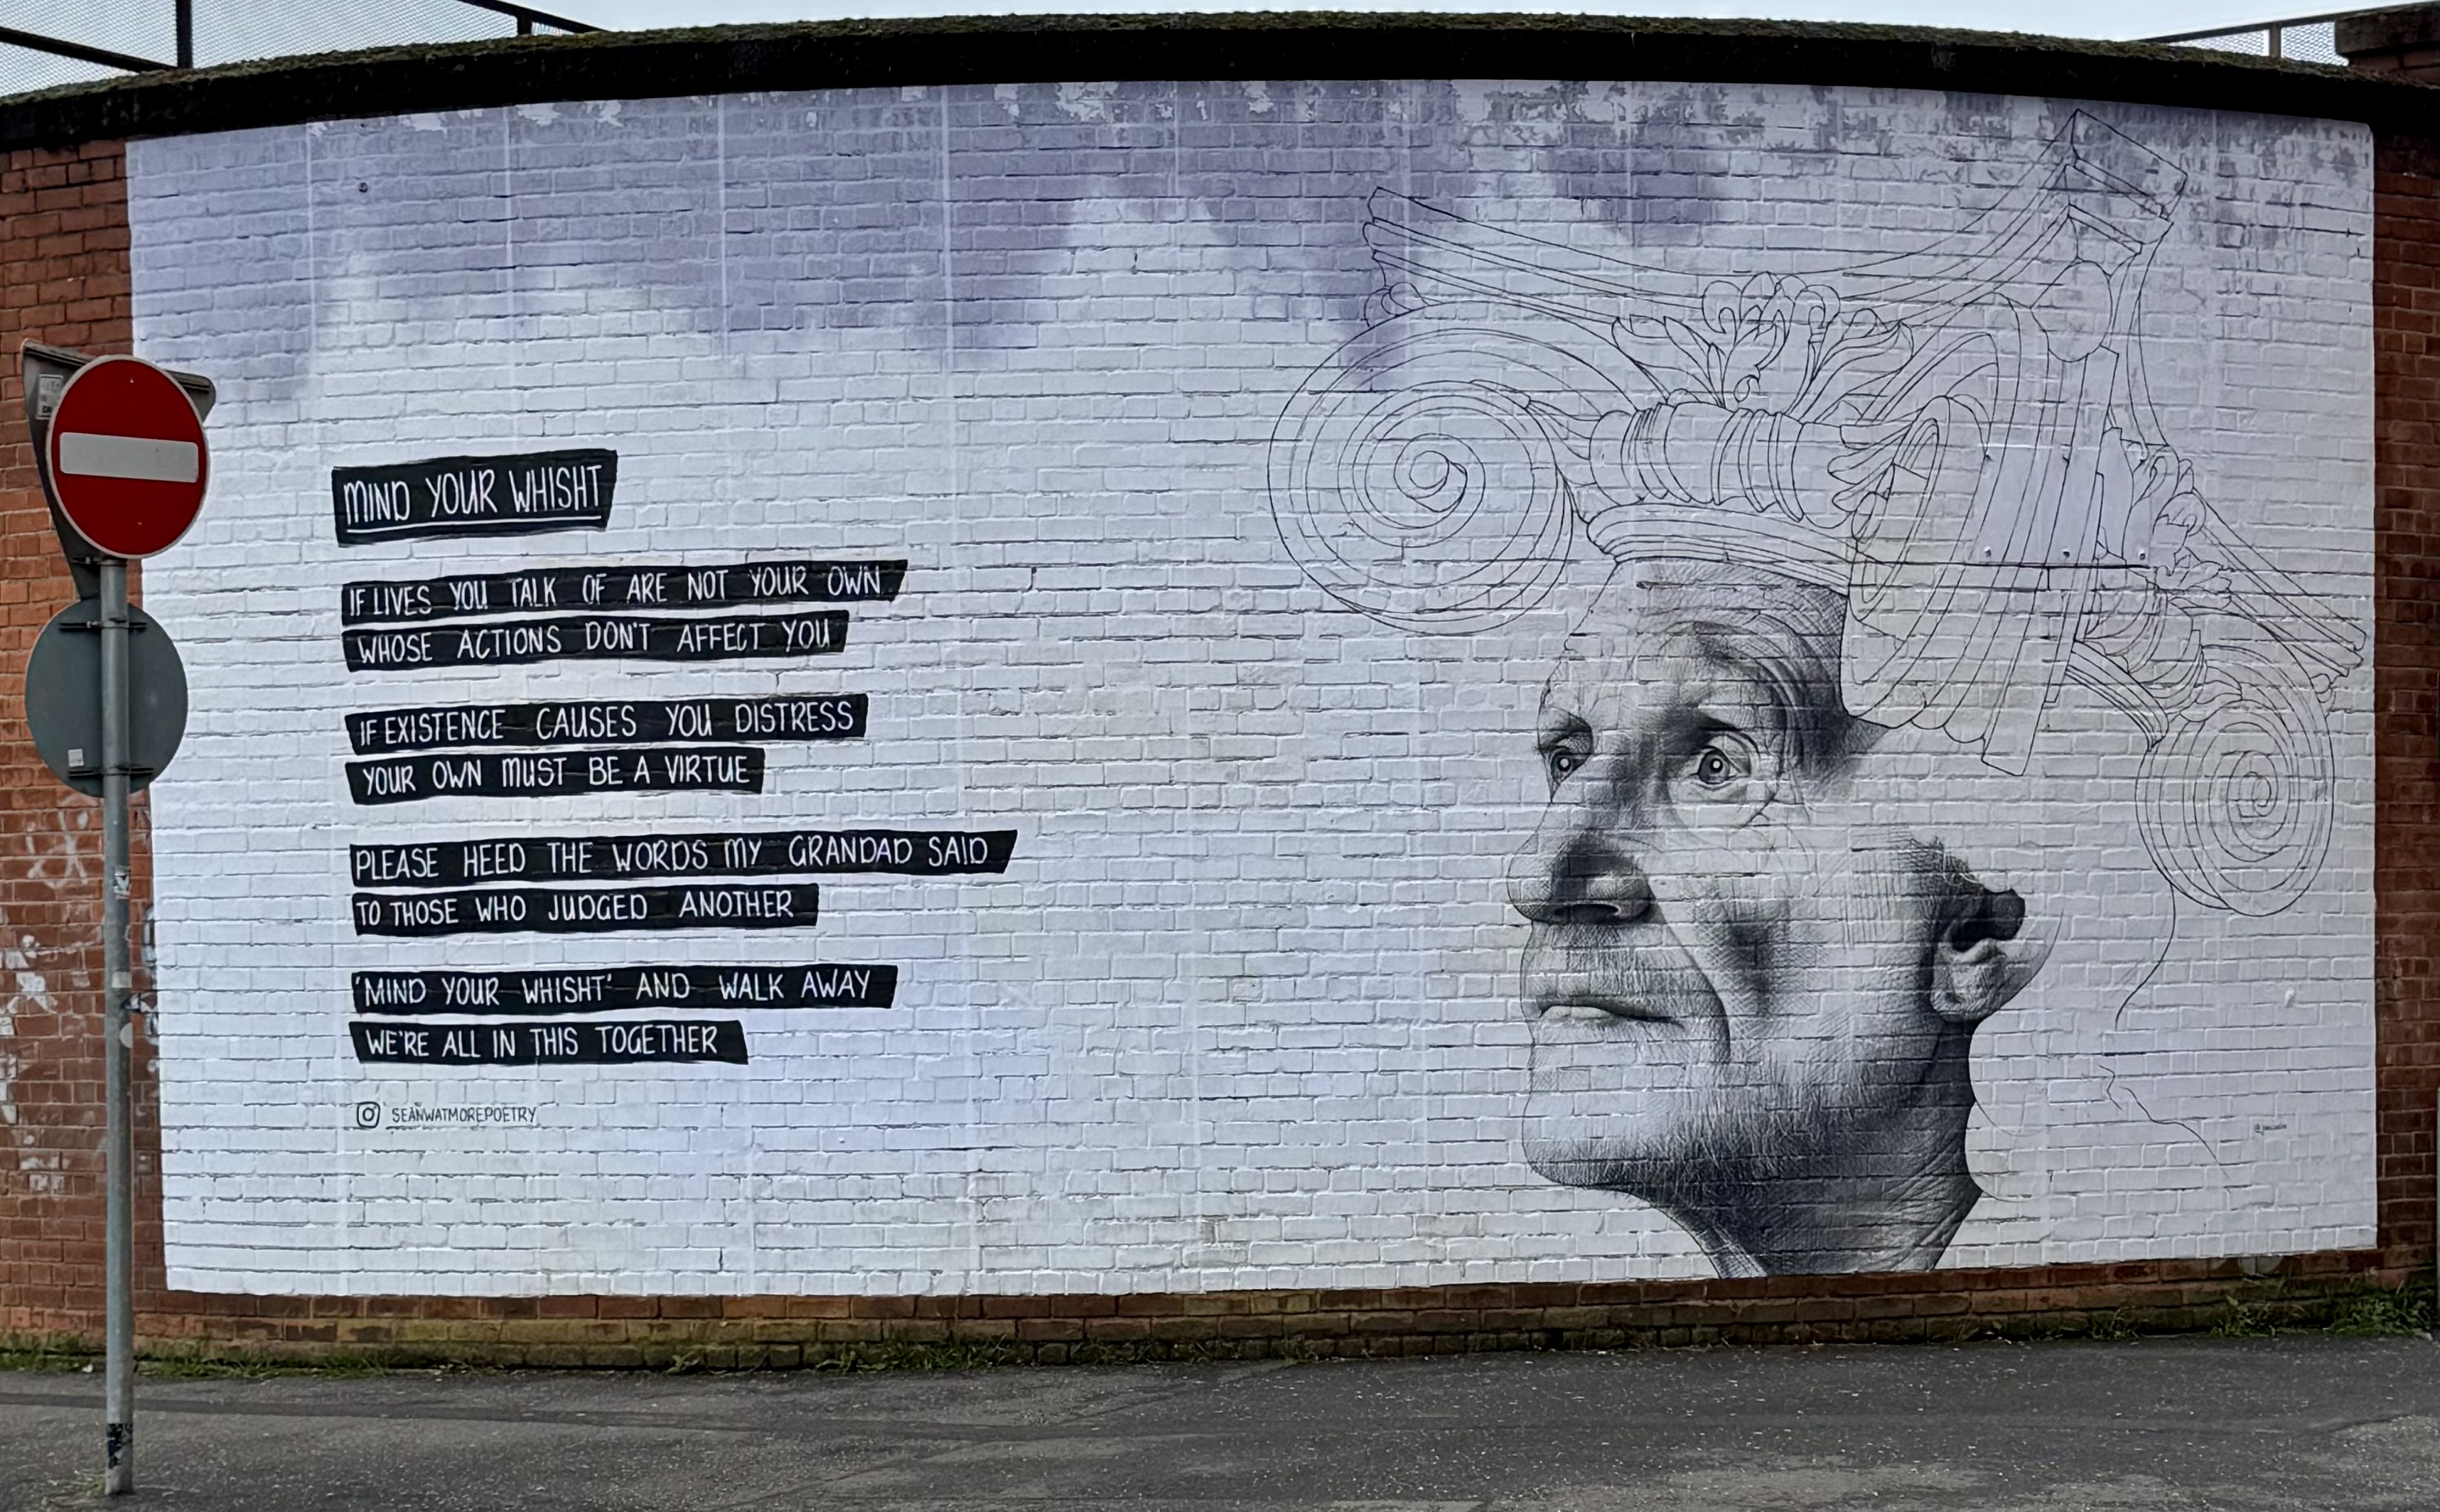 MIND YOUR WHISHT
IF LIVES YOU TALK OF ARE NOT YOUR OWN
WHOSE ACTIONS DON'T AFFECT YOU
IF EXISTENCE CAUSES YOU DISTRESS
YOUR OWN MUST BE A VIRTUE
PLEASE HEED THE WORDS MY GRANDAD SAID
TO THOSE WHO JUDGED ANOTHER
'MIND YOUR WHISHT' AND WALK AWAY
WE'RE ALL IN THIS TOGETHER
SEÁNWATMOREPOETRY